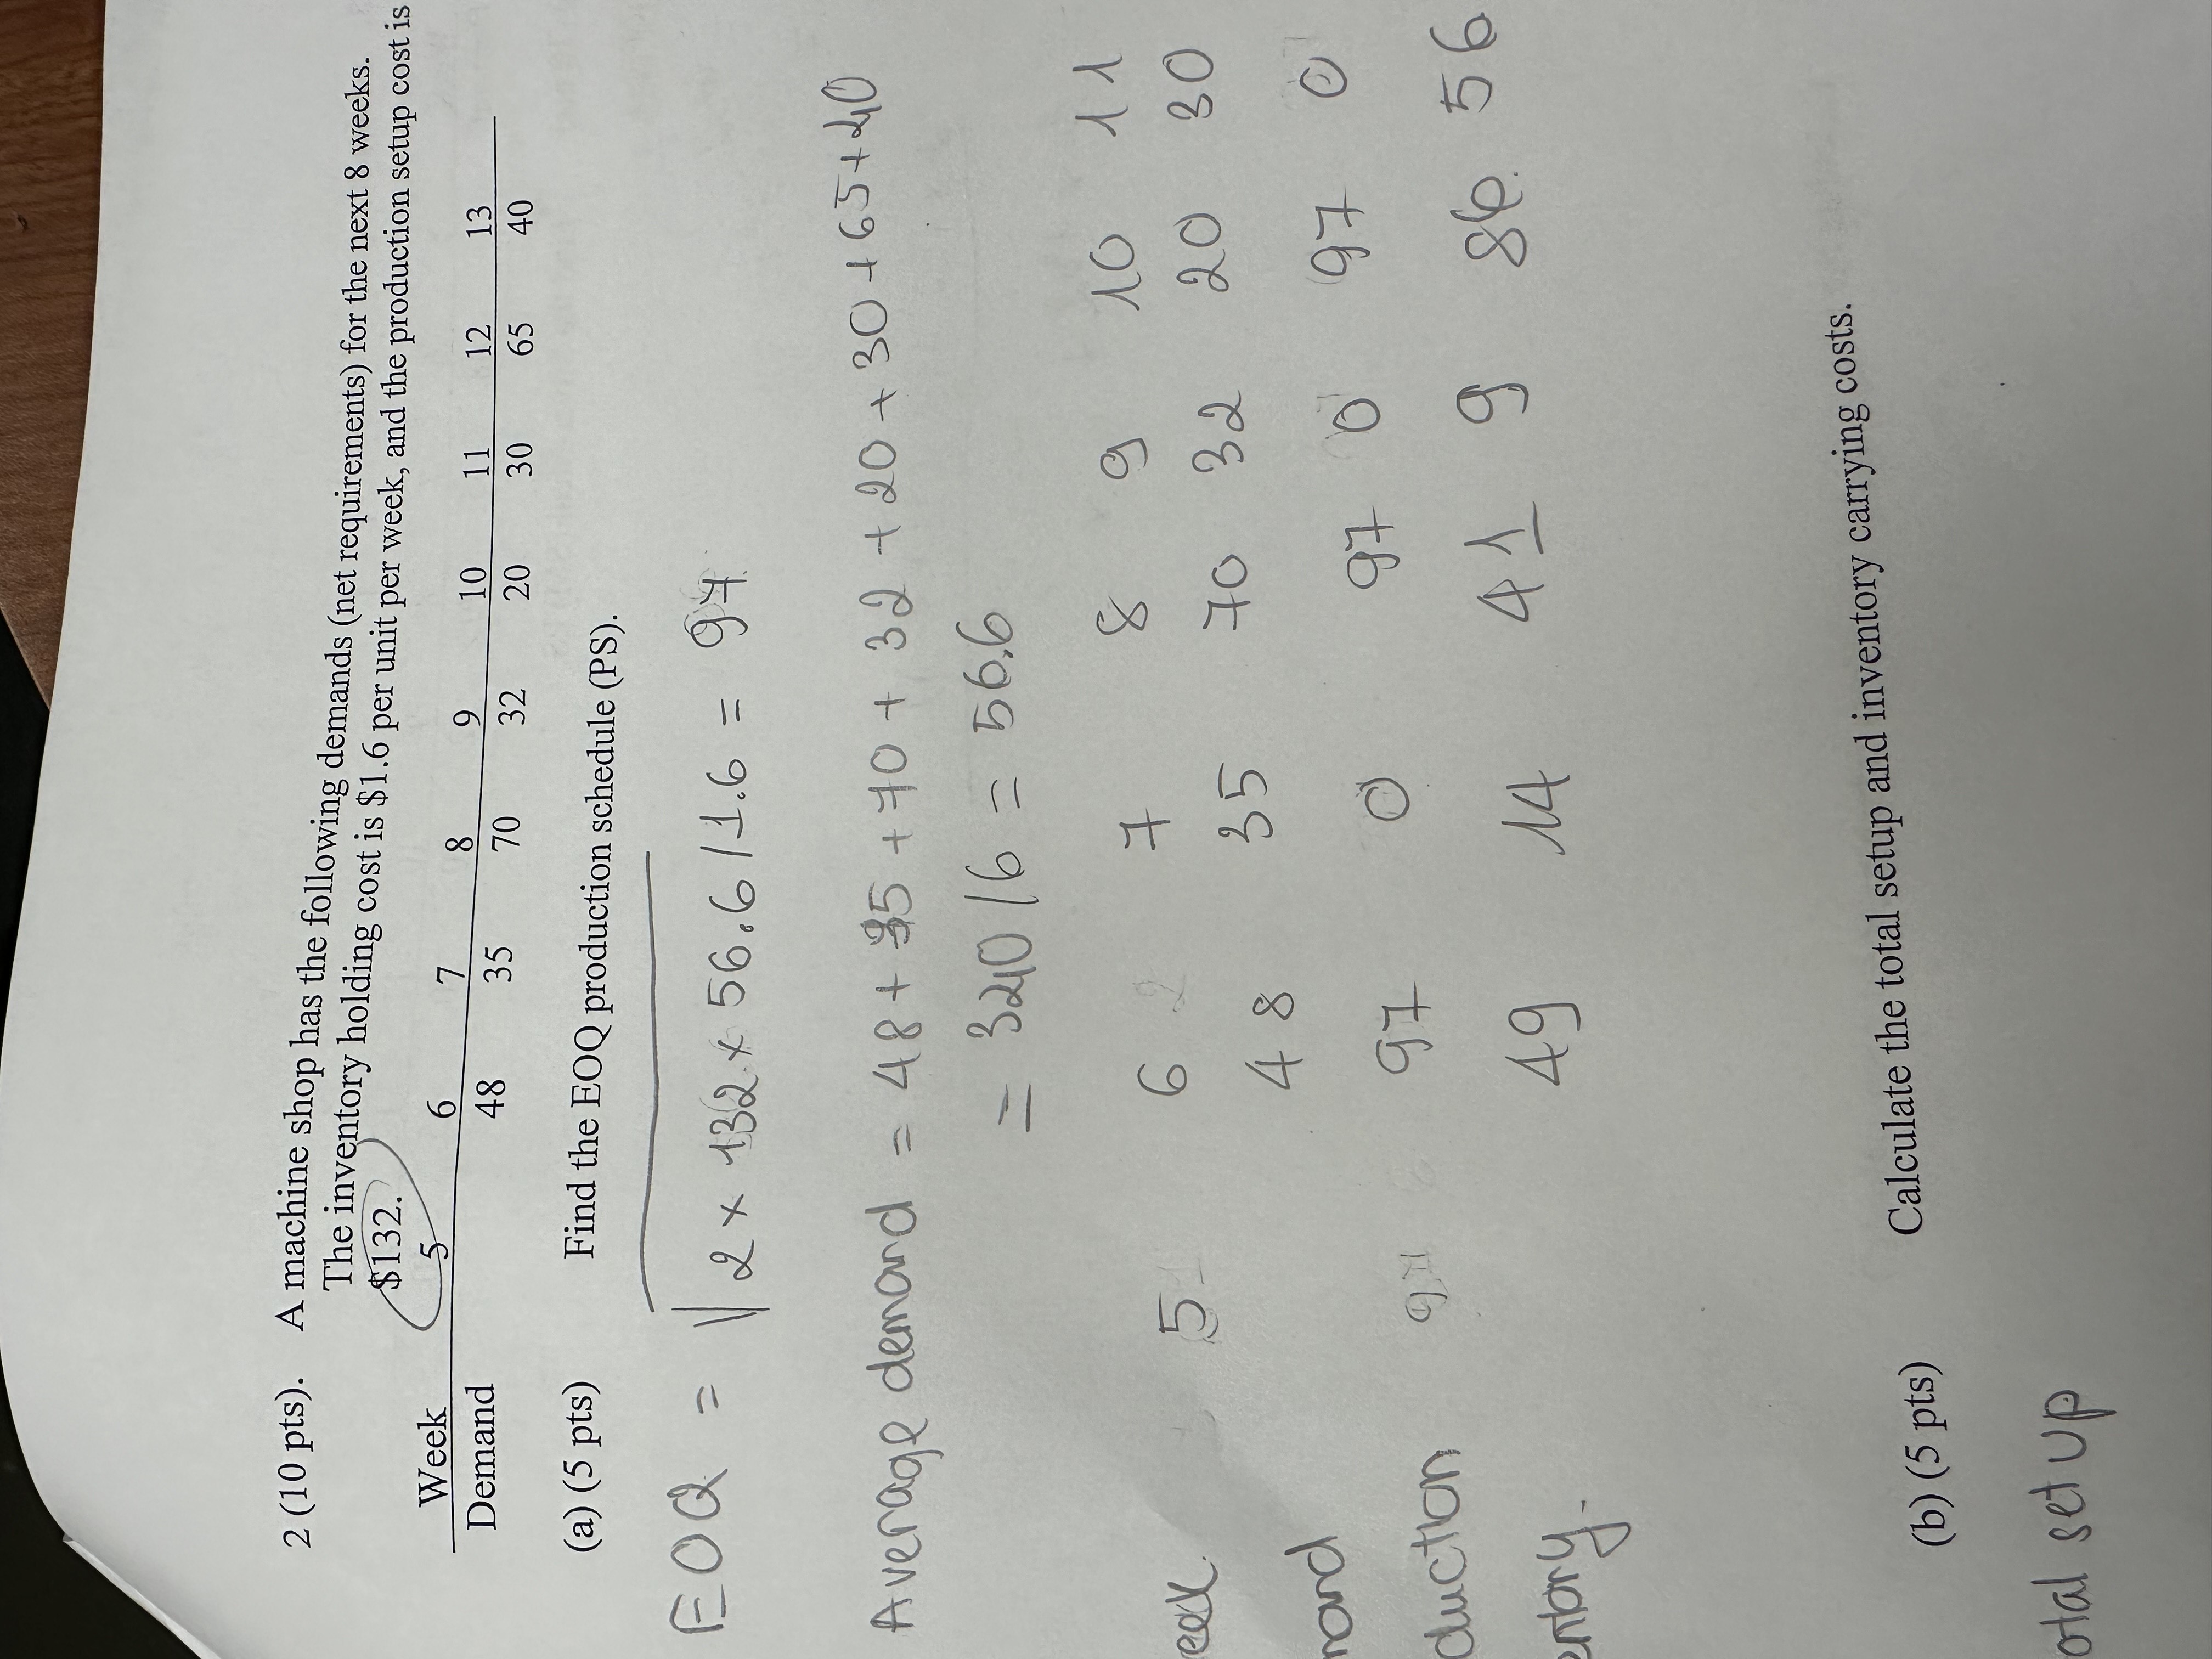 2 (10 pts). A machine shop has the following demands (net requirements) for the next 8 weeks.
The inventory holding cost is $1.6 per unit per week, and the production setup cost is
$132.
5
Week 6 7 8 9 10 11 12 13
Demand 48 35 70 32 20 30 65 40
(a) (5 pts) Find the EOQ production schedule (PS).
EOQ = √2 x 132 x 56.6 / 1.6 = 97
Average demand = 48 + 35 + 70 + 32 + 20 + 30 + 65 + 40
= 340 / 6 = 56.6
eek 5 6 7 8 9 10 11
mand 48 35 70 32 20 30
duction 97 0 97 0 97 0
entory. 49 14 41 9 86 56
(b) (5 pts) Calculate the total setup and inventory carrying costs.
otal set up